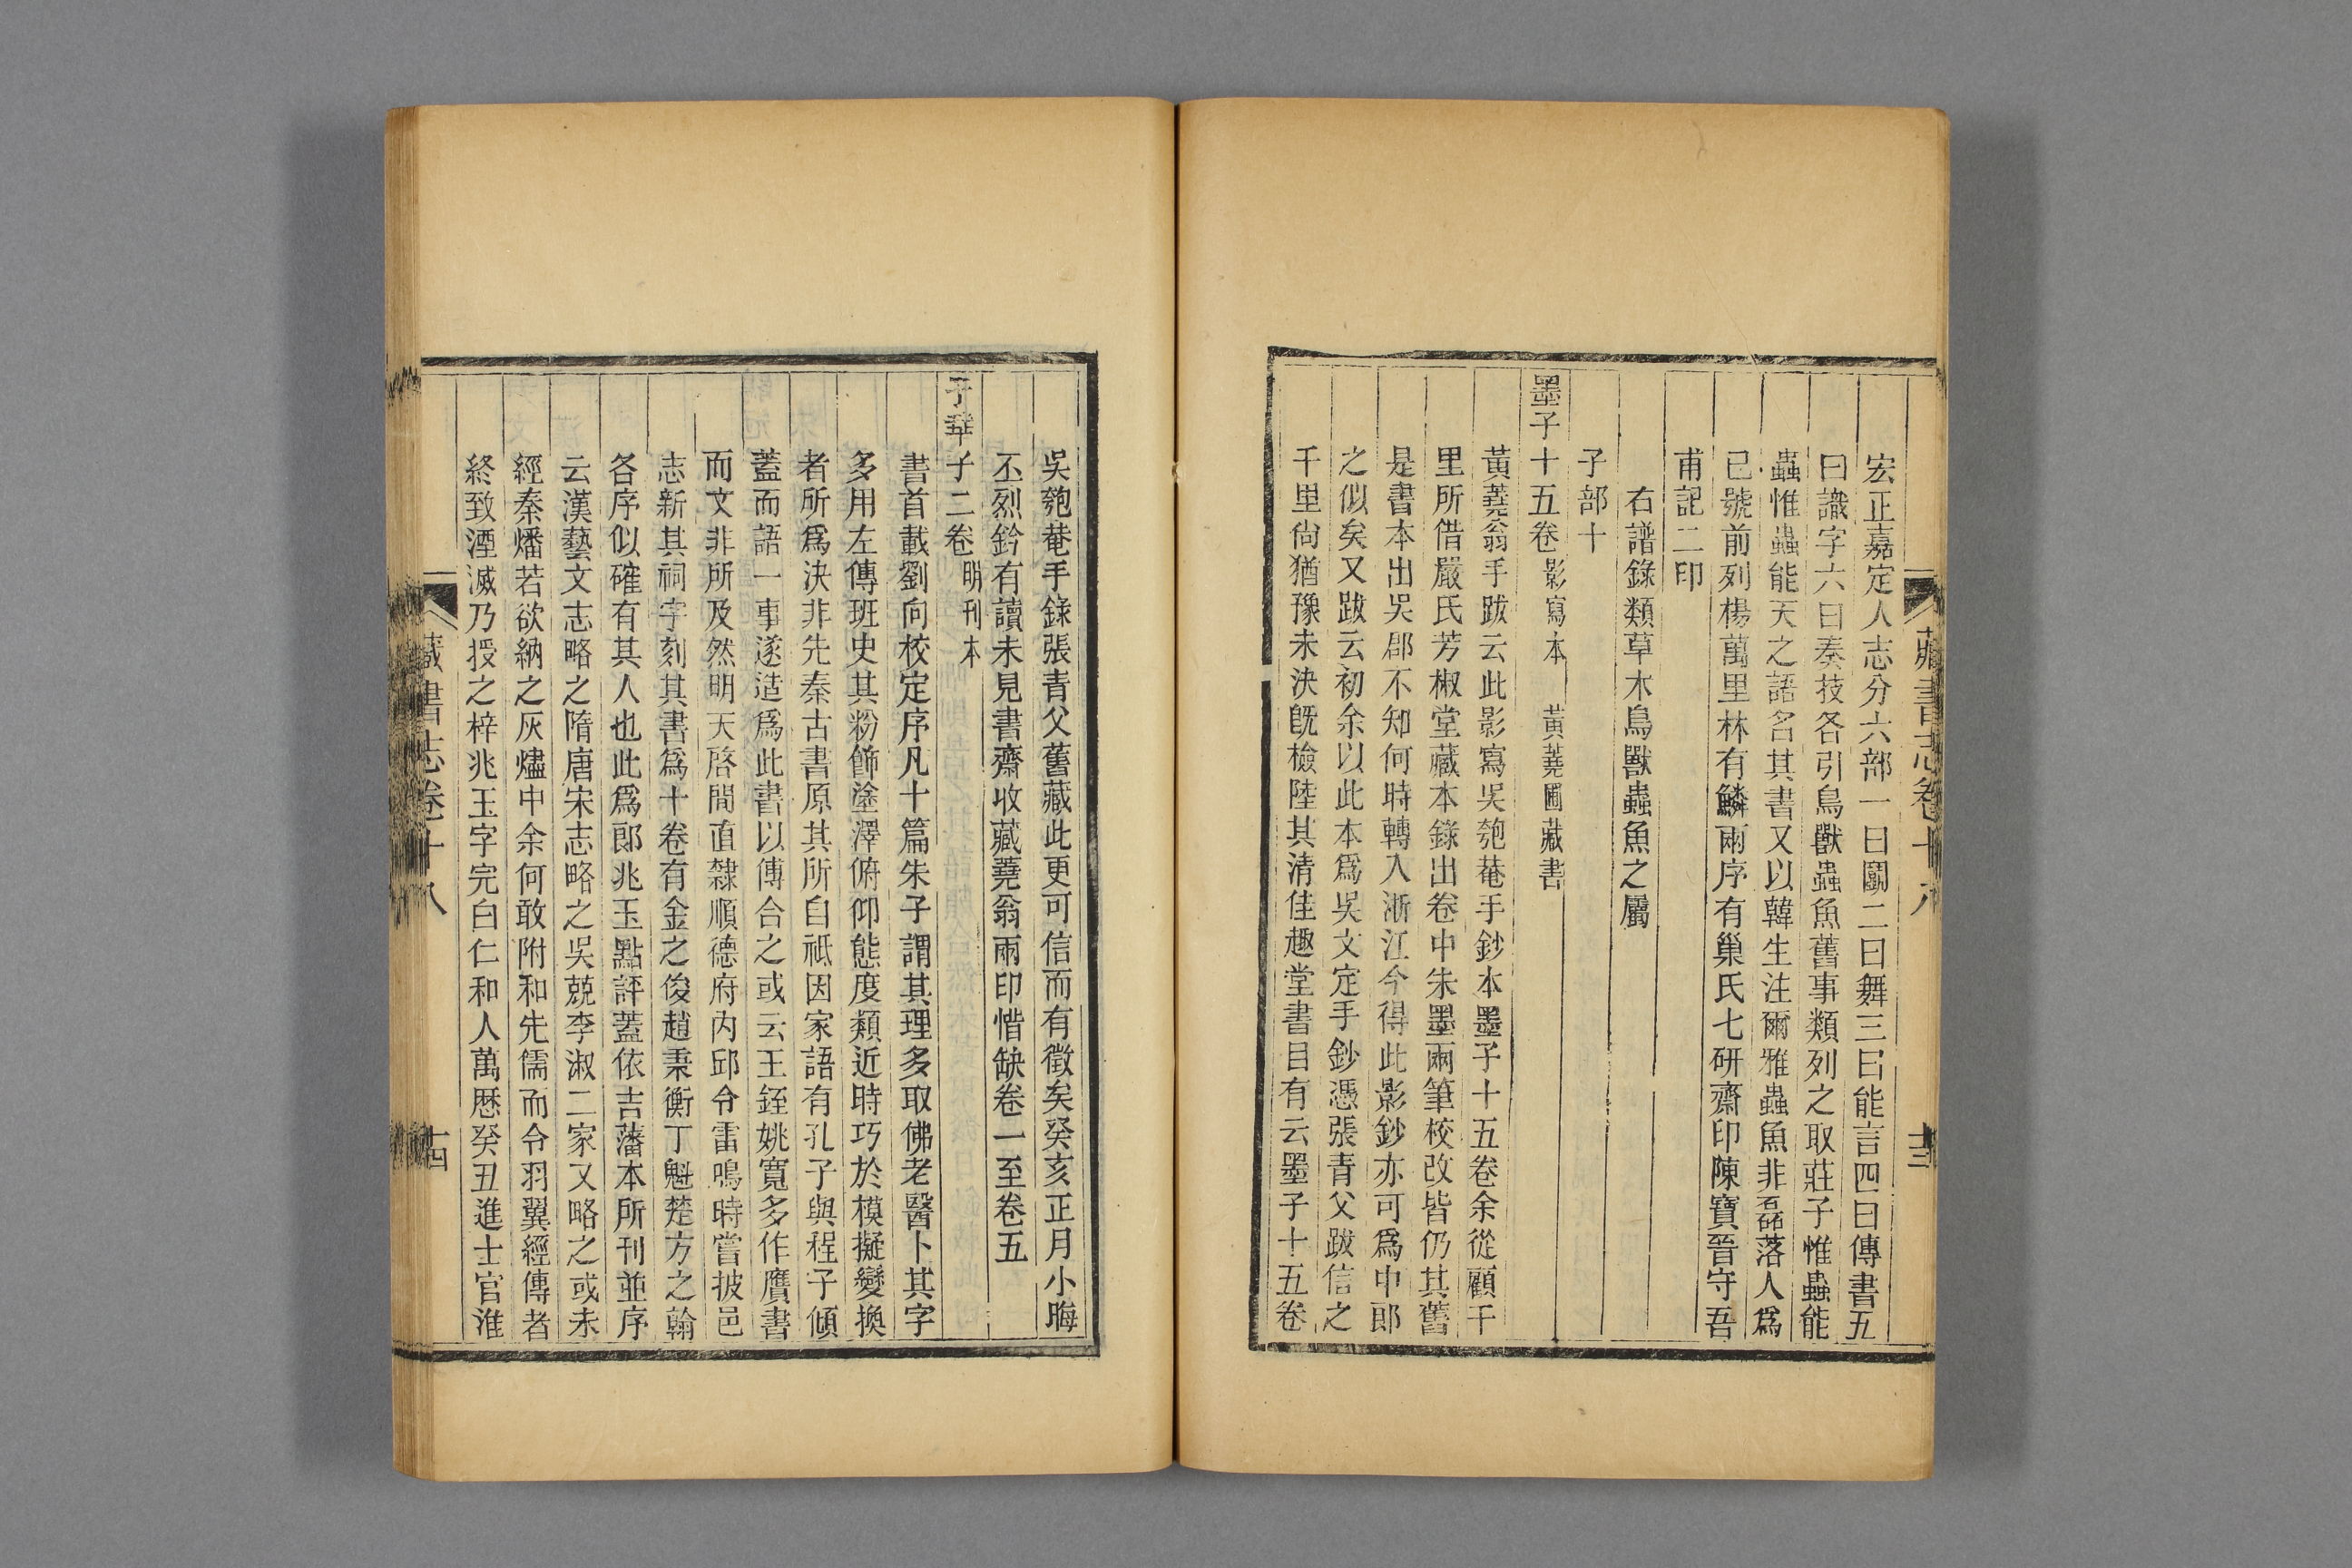 藏書志卷十八
十三
宏正嘉定人志分六部一曰鬭二曰舞三曰能言四曰傳書五
曰識字六曰奏技各引鳥獸蟲魚舊事類列之取莊子惟蟲能
蟲惟蟲能天之語名其書又以韓生注爾雅蟲魚非磊落人爲
已號前列楊萬里林有麟兩序有巢氏七研齋印陳寶晉守吾
甫記二印
右譜錄類草木鳥獸蟲魚之屬
子部十
墨子十五卷影寫本 黃蕘圃藏書
黃蕘翁手跋云此影寫吳匏菴手鈔本墨子十五卷余從顧千
里所借嚴氏芳椒堂藏本錄出卷中朱墨兩筆校改皆仍其舊
是書本出吳郡不知何時轉入浙江今得此影鈔亦可爲中郎
之似矣又跋云初余以此本爲吳文定手鈔憑張青父跋信之
千里尙猶豫未決旣檢陸其清佳趣堂書目有云墨子十五卷
吳匏菴手錄張青父舊藏此更可信而有徵矣癸亥正月小晦
丕烈鈐有讀未見書齋收藏蕘翁兩印惜缺卷一至卷五
子華子二卷明刊本
書首載劉向校定序凡十篇朱子謂其理多取佛老醫卜其字
多用左傳班史其粉飾塗澤俯仰態度類近時巧於模擬變換
者所爲決非先秦古書原其所自祗因家語有孔子與程子傾
蓋而語一事遂造爲此書以傅合之或云王銍姚寬多作贋書
而文非所及然明天啓間直隸順德府內邱令雷鳴時嘗披邑
志新其祠字刻其書爲十卷有金之俊趙秉衡丁魁楚方之翰
各序似確有其人也此爲郎兆玉點評蓋依吉藩本所刊並序
云漢藝文志略之隋唐宋志略之吳兢李淑二家又略之或未
經秦燔若欲納之灰燼中余何敢附和先儒而令羽翼經傳者
終致湮滅乃授之梓兆玉字完白仁和人萬歷癸丑進士官淮
藏書志卷十八
十四